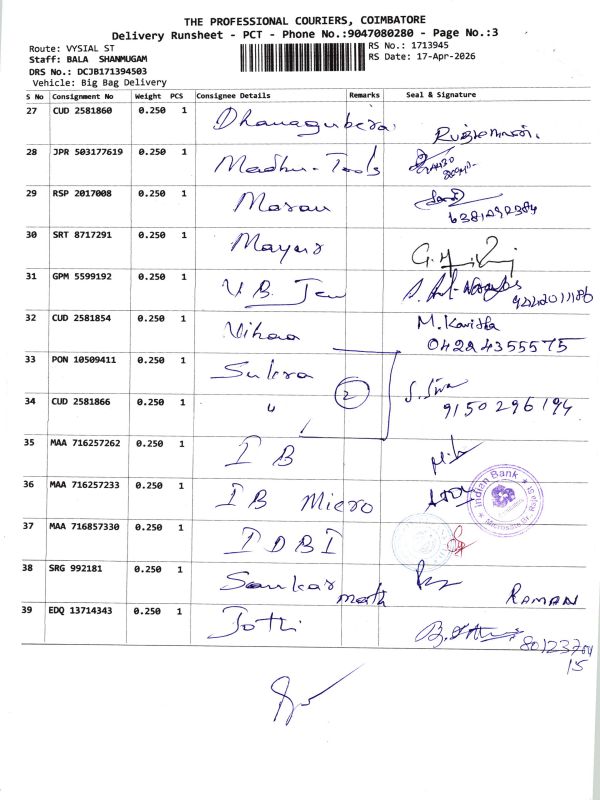 THE PROFESSIONAL COURIERS, COIMBATORE
Delivery Runsheet - PCT - Phone No.:9047080280 - Page No.:3
Route: VYSIAL ST
RS No.: 1713945
Staff: BALA SHANMUGAM
RS Date: 17-Apr-2026
DRS No.: DCJB171394503
Vehicle: Big Bag Delivery
S No Consignment No Weight PCS Consignee Details Remarks Seal & Signature
27 CUD 2581860 0.250 1 Dhanagubera
28 JPR 503177619 0.250 1 Madhu-Tools
29 RSP 2017008 0.250 1 Maran
6381092384
30 SRT 8717291 0.250 1 Mayur
31 GPM 5599192 0.250 1 V.B.
32 CUD 2581854 0.250 1 Vihaa M. Kavitha
04224355575
33 PON 10509411 0.250 1 Sukra S. Siva
34 CUD 2581866 0.250 1 " 2 9150296194
35 MAA 716257262 0.250 1 IB
36 MAA 716257233 0.250 1 IB Micro Indian Bank
37 MAA 716857330 0.250 1 IDBI
38 SRG 992181 0.250 1 Sankar math RAMAN
39 EDQ 13714343 0.250 1 Jothi